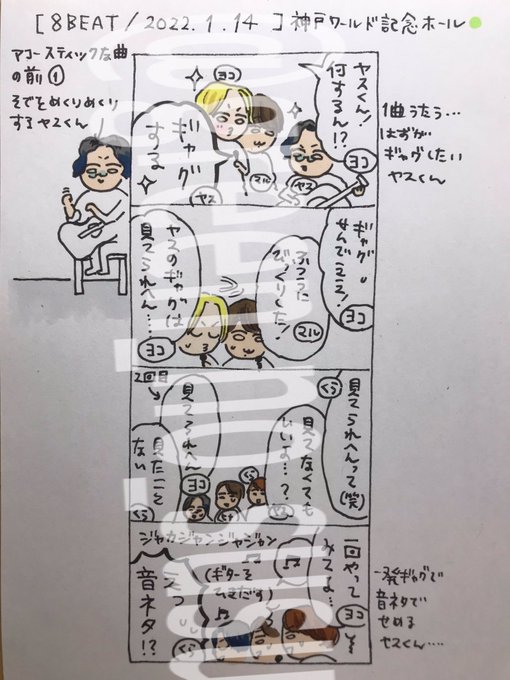 [8BEAT/2022.1.14]神戸ワールド記念ホール
アコースティックな曲
の前①
そでをめくりめくり
するヤスくん
ヤスくん!
何するん!?
ヨコ
ヨコ
ギャグ
する
ヤス
マル
ヤス
1曲うたう…
はずが
ギャグしたい
ヤスくん
ギャグ
せんでええ!
ヨコ
ふつうに
びっくりした!
マル
ヤスのギャグは
見てられへん…
ヨコ
見てられへんって(笑)
くら
見てなくても
いいよ…?
ヤス
2回目
見てられへん
ヨコ
くら
見たことない
くら
一回やって
みてよ…
ヨコ
ジャカジャンジャジャン
(ギターを
えっ
音ネタ!?
くら
一発ギャグで
音ネタで
せめる
ヤスくん…